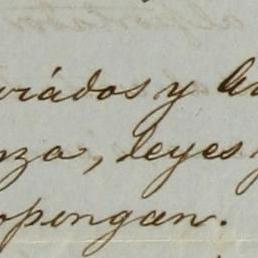 riádos y
nza, leyes y
opongan.